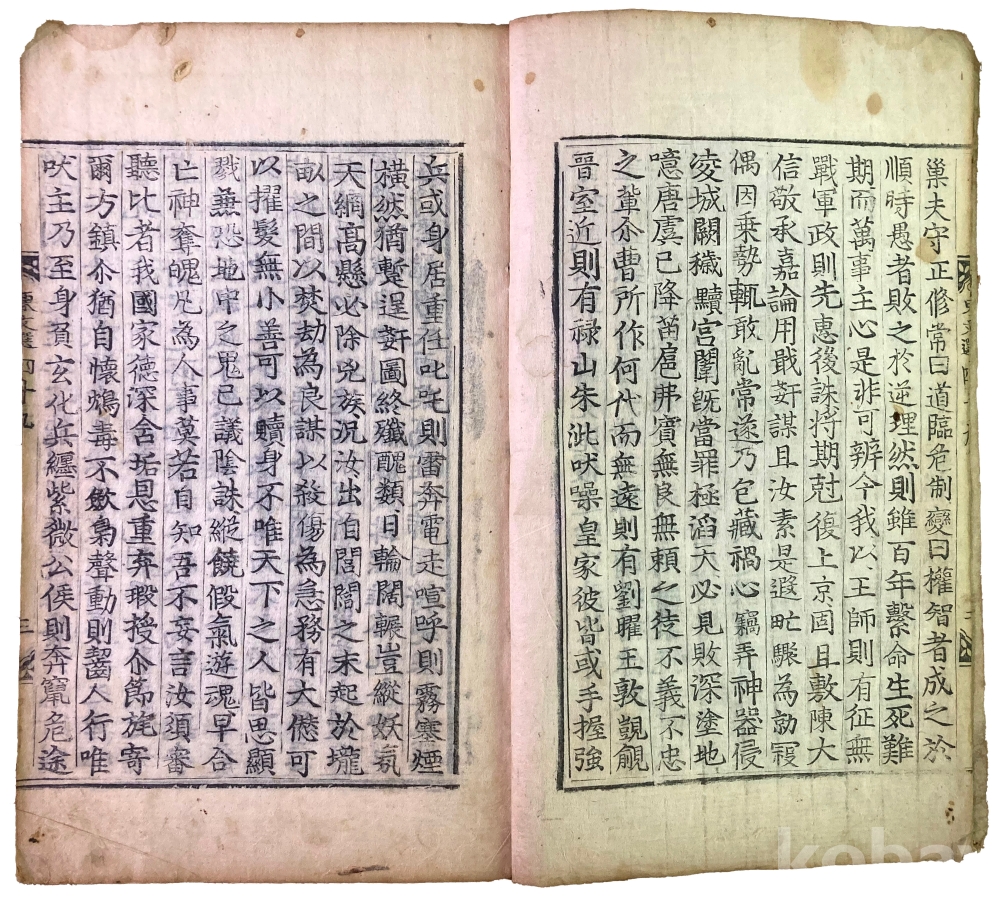 巢夫守正修常曰道臨危制變曰權智者成之於
順時愚者敗之於逆理然則雖百年繫命生死難
期而萬事主心是非可辨今我以王師則有征無
戰軍政則先惠後誅將期尅復上京固且敷陳大
信敬承嘉論用戢奸謀且汝素是遐甿驟為勍寇
偶因乗勢輒敢亂常遂乃包藏禍心竊弄神器侵
凌城闕穢黷宮闈旣當罪極滔天必見敗深塗地
噫唐虞已降苗扈弗賓無良無賴之徒不義不忠
之輩尒曹所作何代而無遠則有劉曜王敦覬覦
晉室近則有祿山朱泚吠噪皇家彼皆或手握強
兵或身居重任叱吒則雷奔電走喧呼則霧塞煙
橫然猶暫逞奸圖終殲醜類日輪闊輾豈縱妖氛
天網高懸必除兇族況汝出自閭閻之末起於壠
畝之間以焚劫為良謀以殺傷為急務有大僁可
以擢髮無小善可以贖身不唯天下之人皆思顯
戮兼恐地中之鬼已議陰誅縱饒假氣遊魂早合
亡神奪魄凡為人事莫若自知吾不妄言汝須審
聽比者我國家德深含垢恩重弃瑕授尒節旄寄
爾方鎮尒猶自懷鴆毒不斂梟聲動則齧人行唯
吠主乃至身負玄化兵纏紫微公侯則奔竄危途
東文選四十九 三